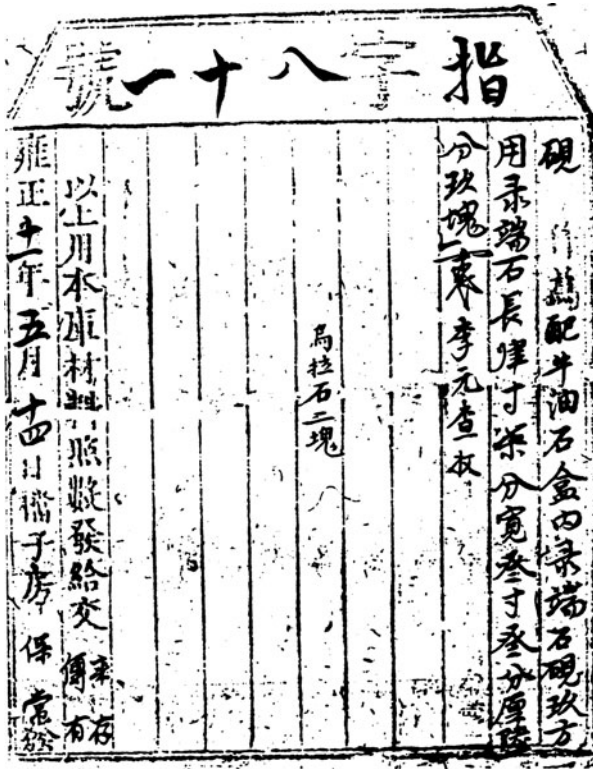 指字八十一號
硯 作為配牛油石盒內彔端石硯玖方
用彔端石長肆寸柒分寬叁寸叁分厚陸
分玖塊 李元查收
烏拉石二塊
以上用本庫材料照數發給交
雍正十一年五月十四日 子房 保 常